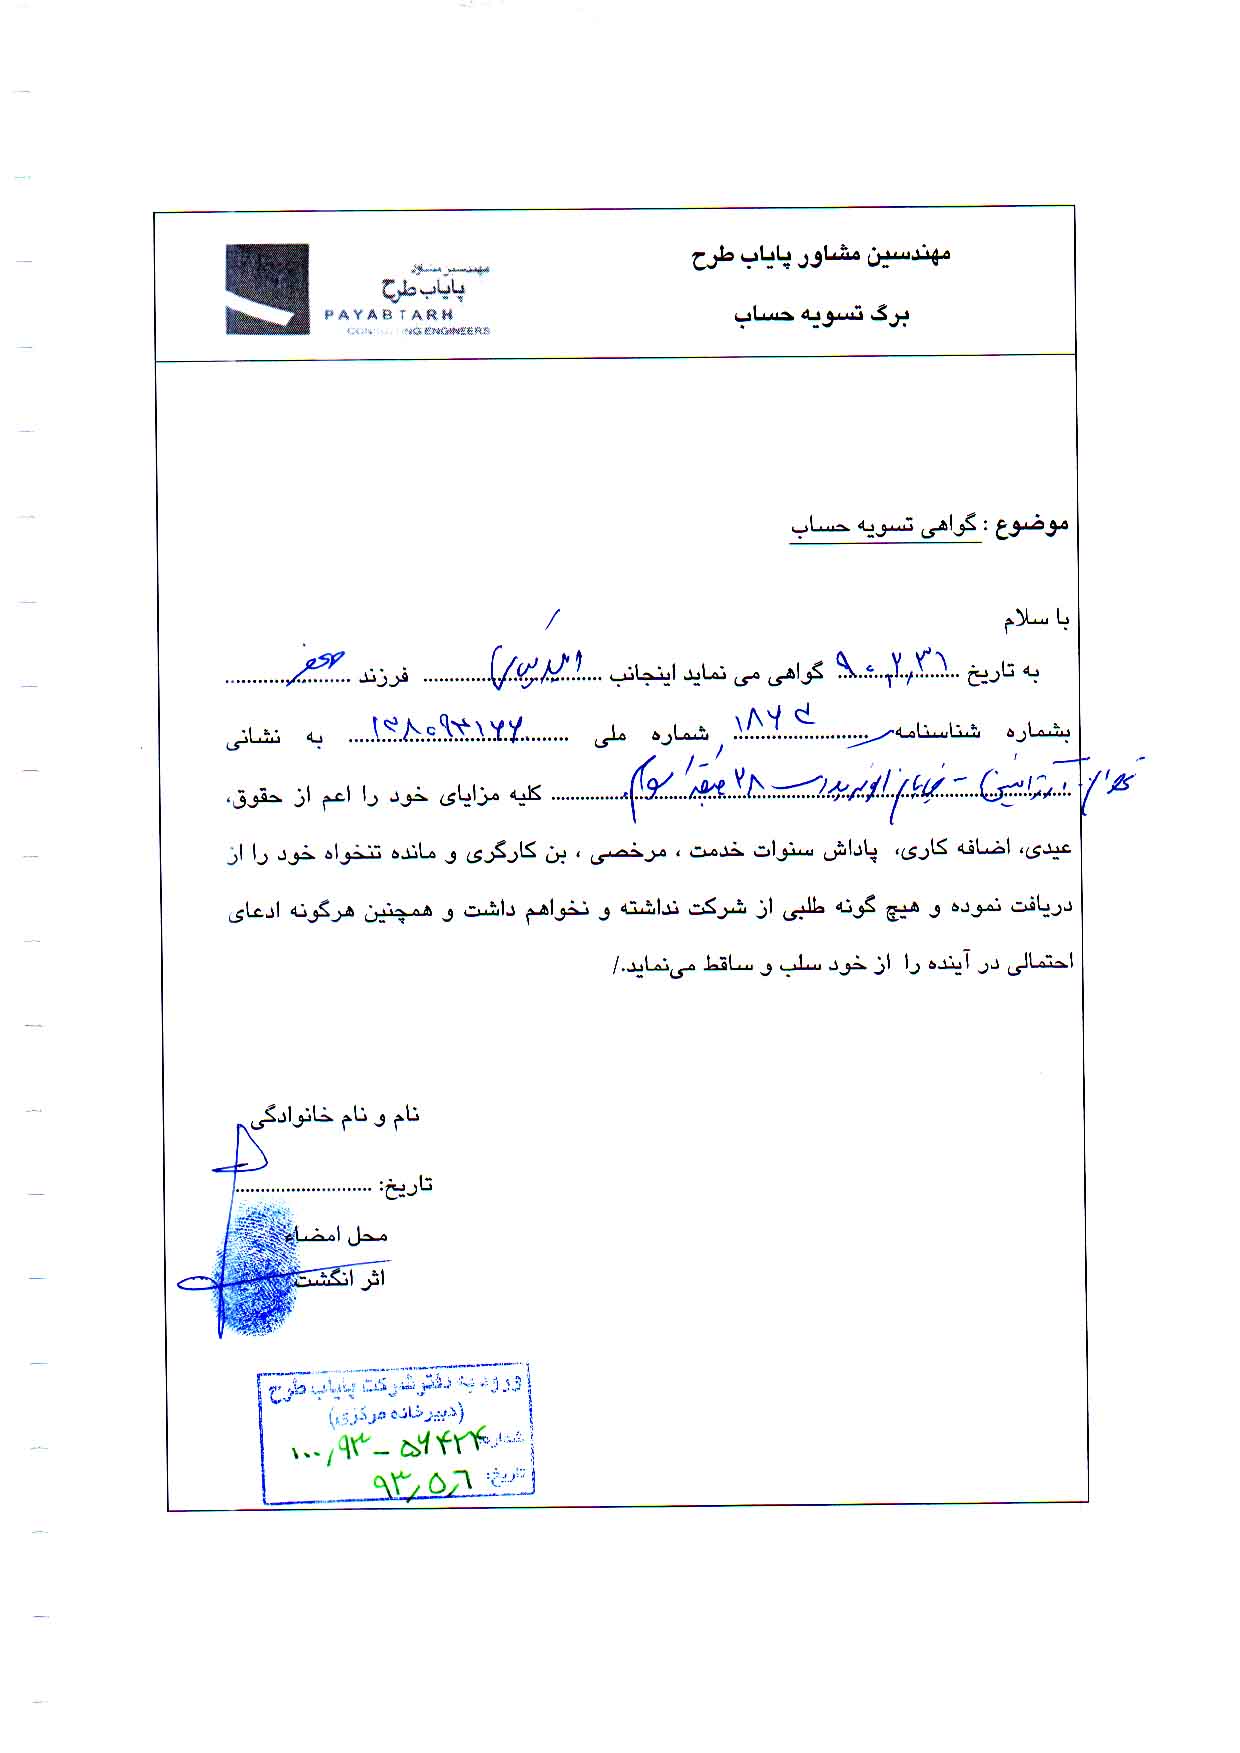 مهندسین مشاور پایاب طرح
برگ تسویه حساب
مهندسین مشاور
پایاب طرح
PAYAB TARH
CONSULTING ENGINEERS
موضوع : گواهی تسویه حساب
با سلام
به تاریخ ۹۰،۲،۳۱ گواهی می نماید اینجانب ........ فرزند ........
بشماره شناسنامه ۱۸۶۴ شماره ملی ........ به نشانی
........ خیابان ........ ۲۸ طبقه سوم ........ کلیه مزایای خود را اعم از حقوق،
عیدی، اضافه کاری، پاداش سنوات خدمت ، مرخصی ، بن کارگری و مانده تنخواه خود را از
دریافت نموده و هیچ گونه طلبی از شرکت نداشته و نخواهم داشت و همچنین هرگونه ادعای
احتمالی در آینده را از خود سلب و ساقط می‌نماید./
نام و نام خانوادگی
تاریخ: ........
محل امضاء
اثر انگشت
ورود به دفتر شرکت پایاب طرح
(دبیرخانه مرکزی)
شماره: ۱۰۰٫۹۳ – ۵۶۴۲۴
تاریخ: ۹۳٫۵٫۶